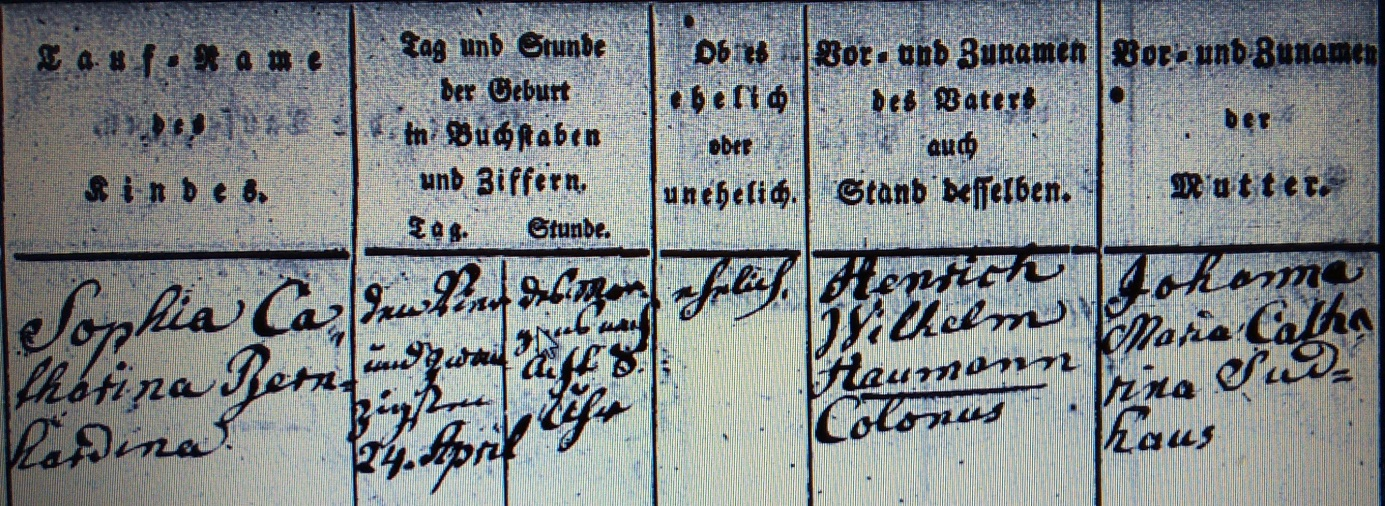 Tauf-Name
des
Kindes.
Tag und Stunde
der Geburt
in Buchstaben
und Ziffern.
Tag. Stunde.
Ob es
ehelich
oder
unehelich.
Vor- und Zunamen
des Vaters
auch
Stand desselben.
Vor- und Zunamen
der
Mutter.
Sophia Ca-
tharina Bern-
hardina
den Vier
und zwan
zigsten
24. April
des Mor-
gens nach
acht 8.
Uhr
ehelich.
Henrich
Wilhelm
Haumann
Colonus
Johanna
Maria Catha
rina Sud-
haus